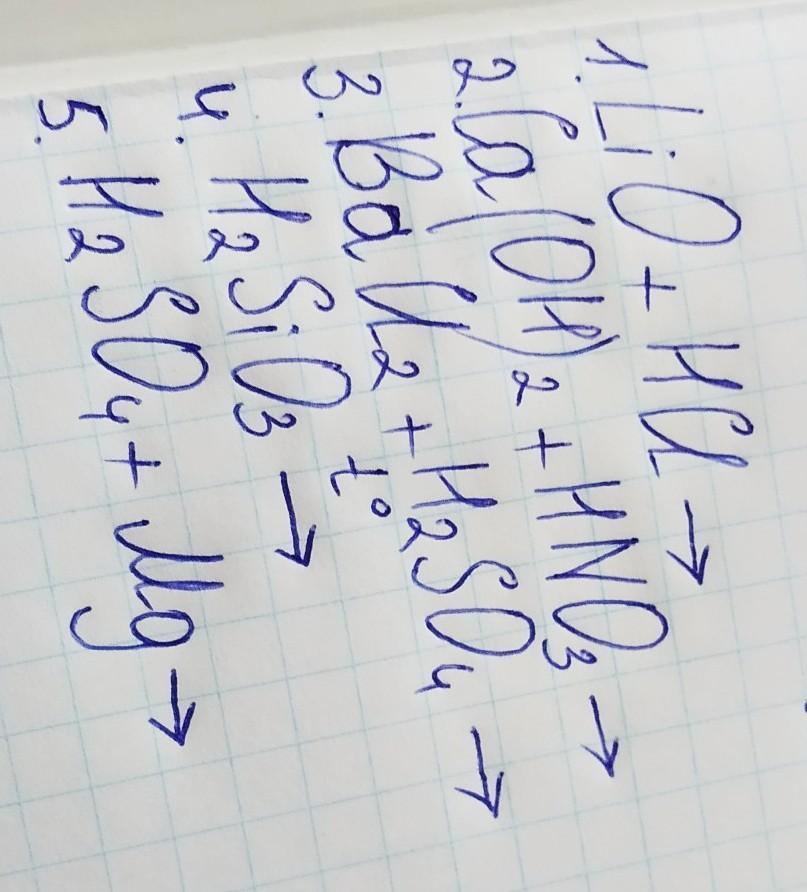 1. LiO + HCl →
2. Ca(OH)2 + HNO3 →
3. BaCl2 + H2SO4 →
4. H2SiO3 t° →
5. H2SO4 + Mg →